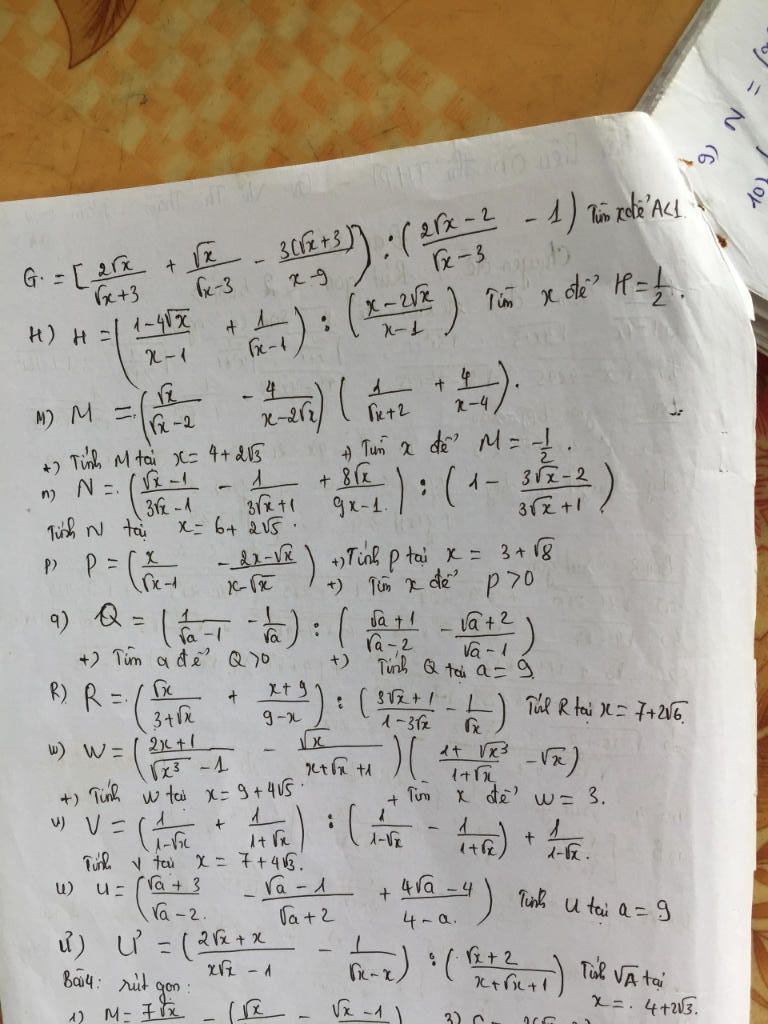 G. = [2√x/(√x+3) + √x/(√x-3) - 3(√x+3)/(x-9)) : (2√x-2/(√x-3) - 1) Tìm x để A<1.
H) H = (1-4√x/(x-1) + 1/(√x-1)) : (x-2√x/(x-1)) Tìm x để H = 1/2.
M) M = (√x/(√x-2) - 4/(x-2√x)) (1/(√x+2) + 4/(x-4)).
+) Tính M tại x = 4+2√3 +) Tìm x để M = -1/2.
n) N = (√x-1/(3√x-1) - 1/(3√x+1) + 8√x/(9x-1)) : (1 - 3√x-2/(3√x+1))
Tính N tại x = 6+2√5.
P) P = (x/(√x-1) - 2x-√x/(x-√x)) +) Tính p tại x = 3+√8
+) Tìm x để p>0
q) Q = (1/(√a-1) - 1/√a) : (√a+1/(√a-2) - √a+2/(√a-1))
+) Tìm a để Q>0 +) Tính Q tại a = 9.
R) R = (√x/(3+√x) + x+9/(9-x)) : (3√x+1/(1-3√x) - 1/√x) Tính R tại x = 7+2√6.
w) W = (2x+1/(√x³-1) - √x/(x+√x+1)) (1+√x³/(1+√x) - √x)
+) Tính w tại x = 9+4√5. + Tìm x để w = 3.
v) V = (1/(1-√x) + 1/(1+√x)) : (1/(1-√x) - 1/(1+√x)) + 1/(1-√x).
Tính v tại x = 7+4√3.
u) U = (√a+3/(√a-2) - √a-1/(√a+2) + 4√a-4/(4-a)) Tính u tại a = 9
ư) Ư = (2√x+x/(x√x-1) - 1/(√x-x)) : (√x+2/(x+√x+1)) Tính √A tại
Bài 4: rút gọn: x = 4+2√3.
1) M = 7√x - (√x - √x-1
9) N =
10)